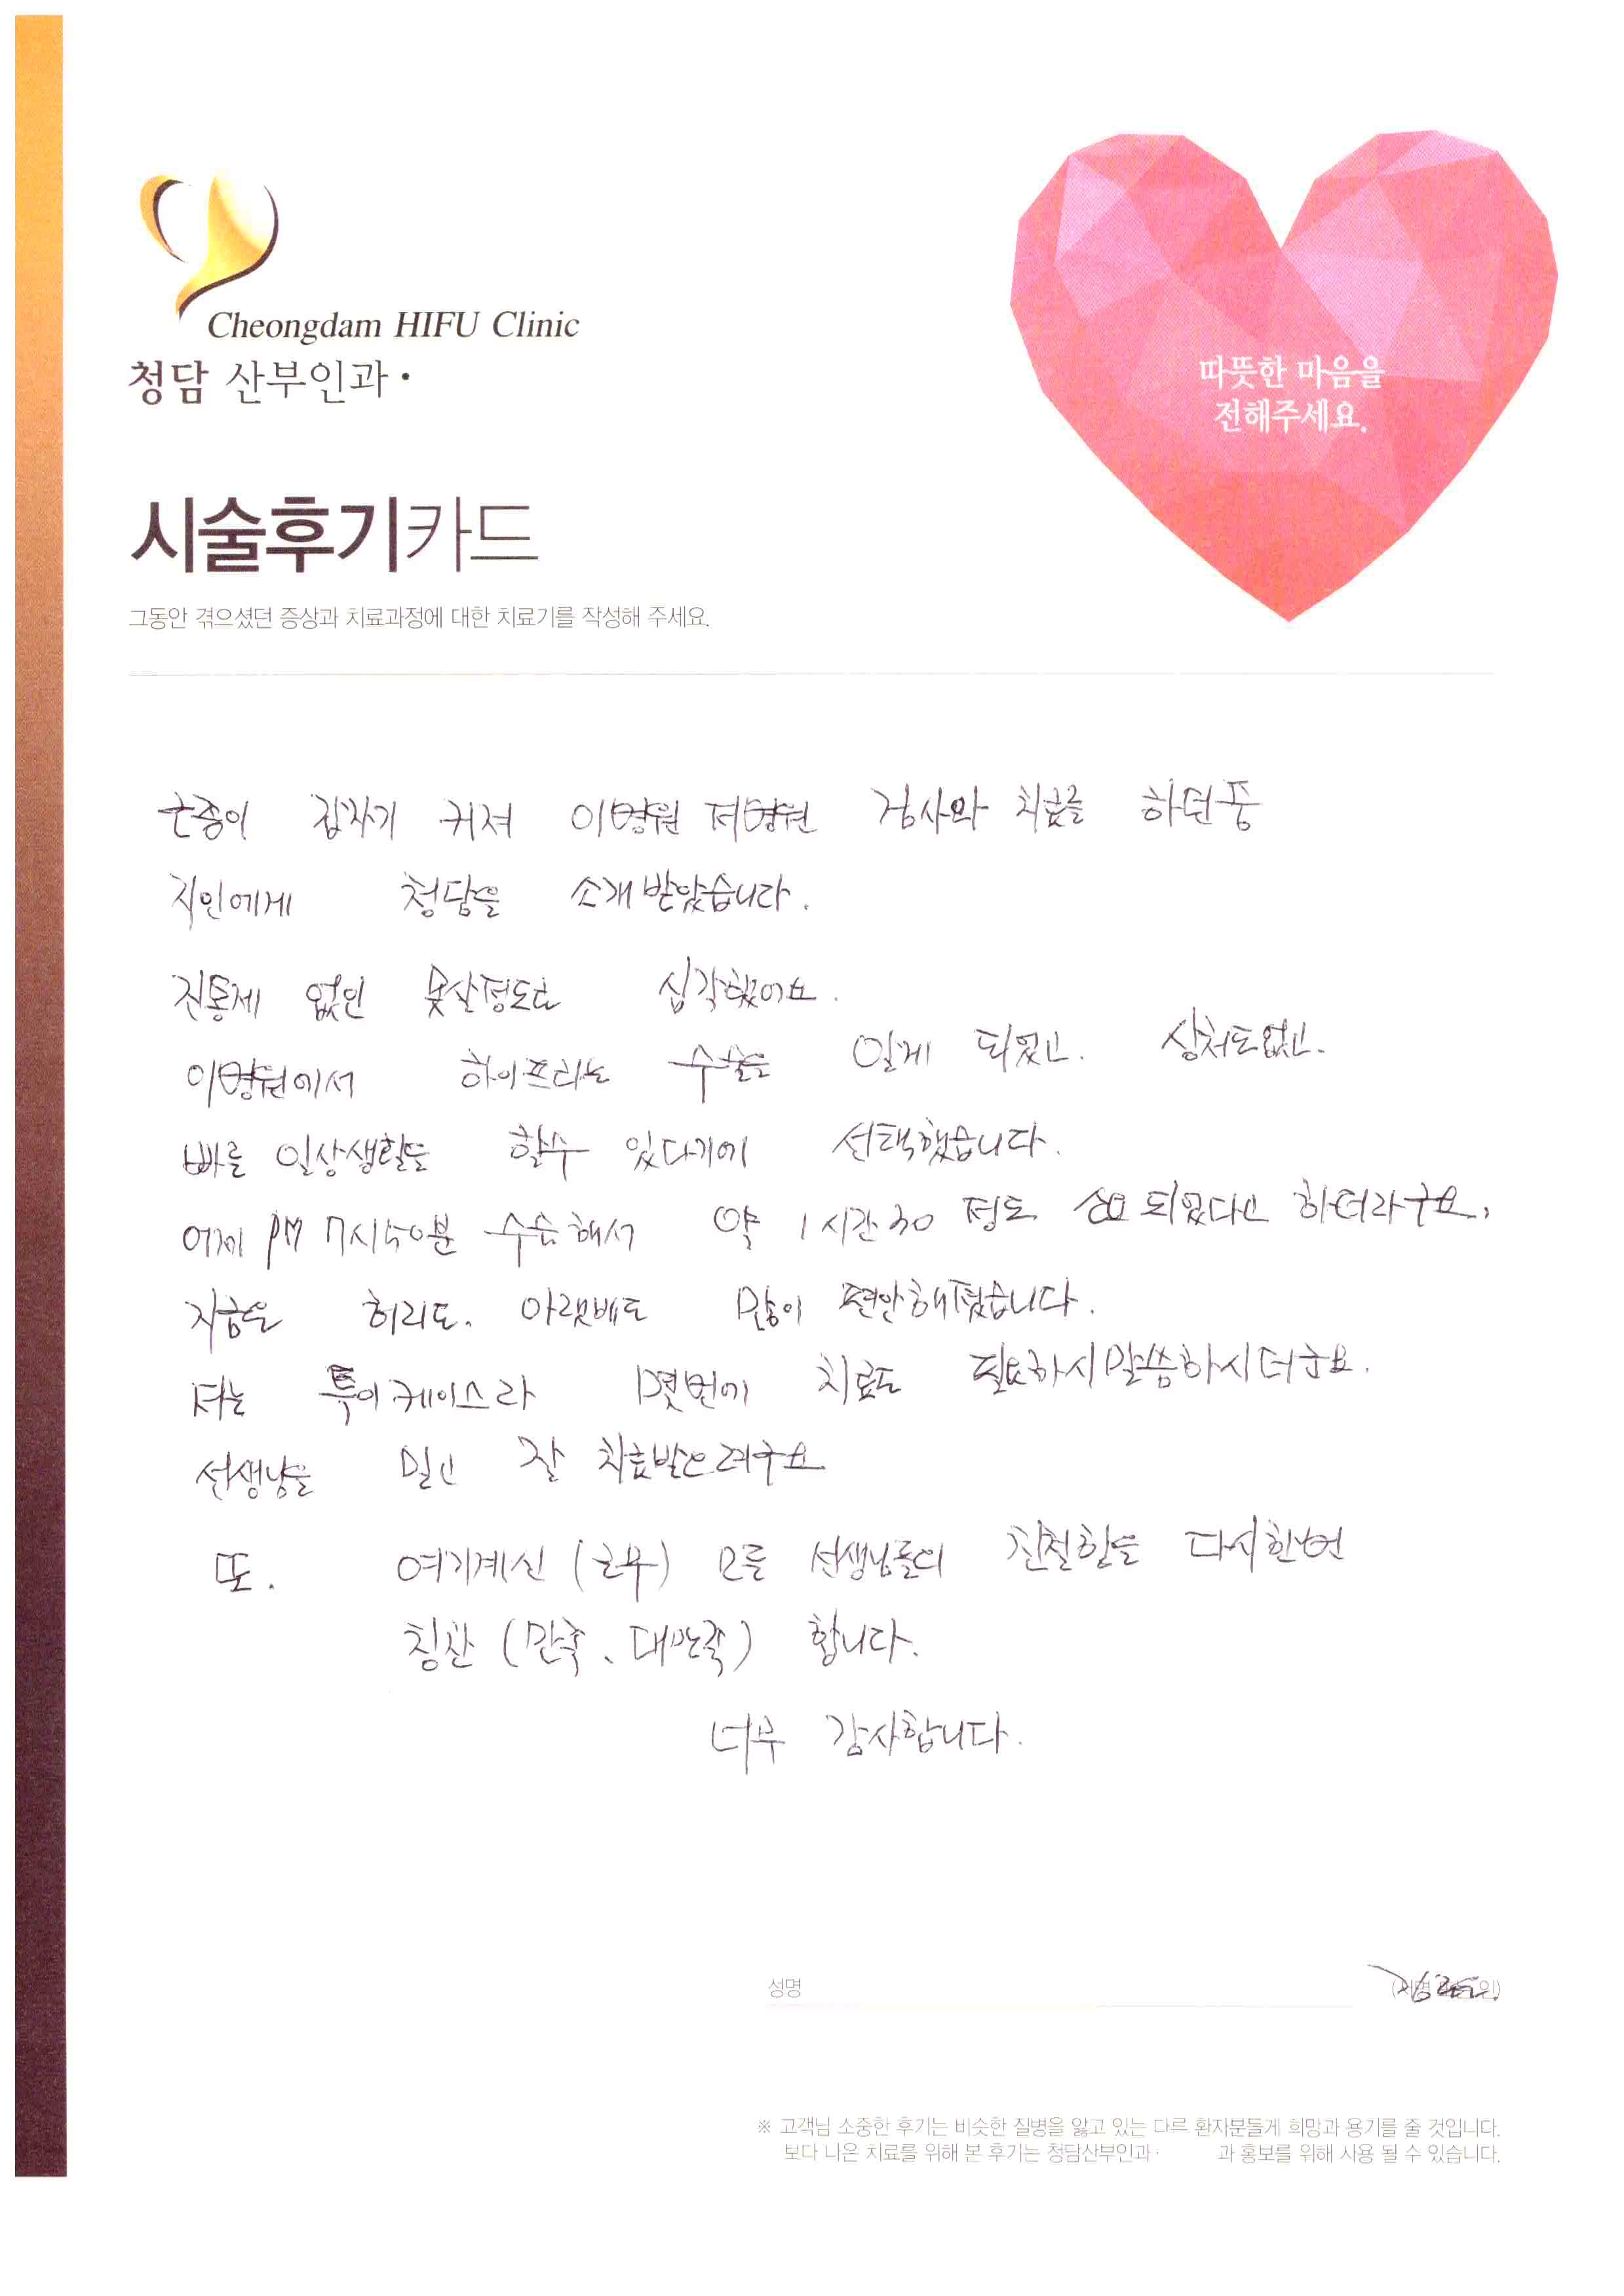 Cheongdam HIFU Clinic
청담 산부인과·
따뜻한 마음을
전해주세요.
시술후기카드
그동안 겪으셨던 증상과 치료과정에 대한 치료기를 작성해 주세요.
근종이 갑자기 커져 이병원 저병원 검사와 치료를 하던중
지인에게 청담을 소개받았습니다.
진통제 없인 못살정도로 심각했어요.
이병원에서 하이프라는 수술을 알게 되었고. 상처도없고.
빠를 일상생활을 할수 있다기에 선택했습니다.
어제 PM 7시50분 수술해서 약 1시간30 정도 소요 되었다고 하더라구요,
지금은 허리도. 아랫배도 많이 편안해졌습니다.
저는 특이케이스라 몇번에 치료도 필요하시말씀하시더군요.
선생님을 믿고 잘 치료받으려구요
또. 여기계신 (근무) 모를 선생님들의 친절함을 다시한번
칭찬 (만족、대만족) 합니다.
너무 감사합니다.
성명
※ 고객님 소중한 후기는 비슷한 질병을 앓고 있는 다르 환자분들게 희망과 용기를 줄 것입니다.
보다 나은 치료를 위해 본 후기는 청담산부인과· 과 홍보를 위해 사용 될 수 있습니다.